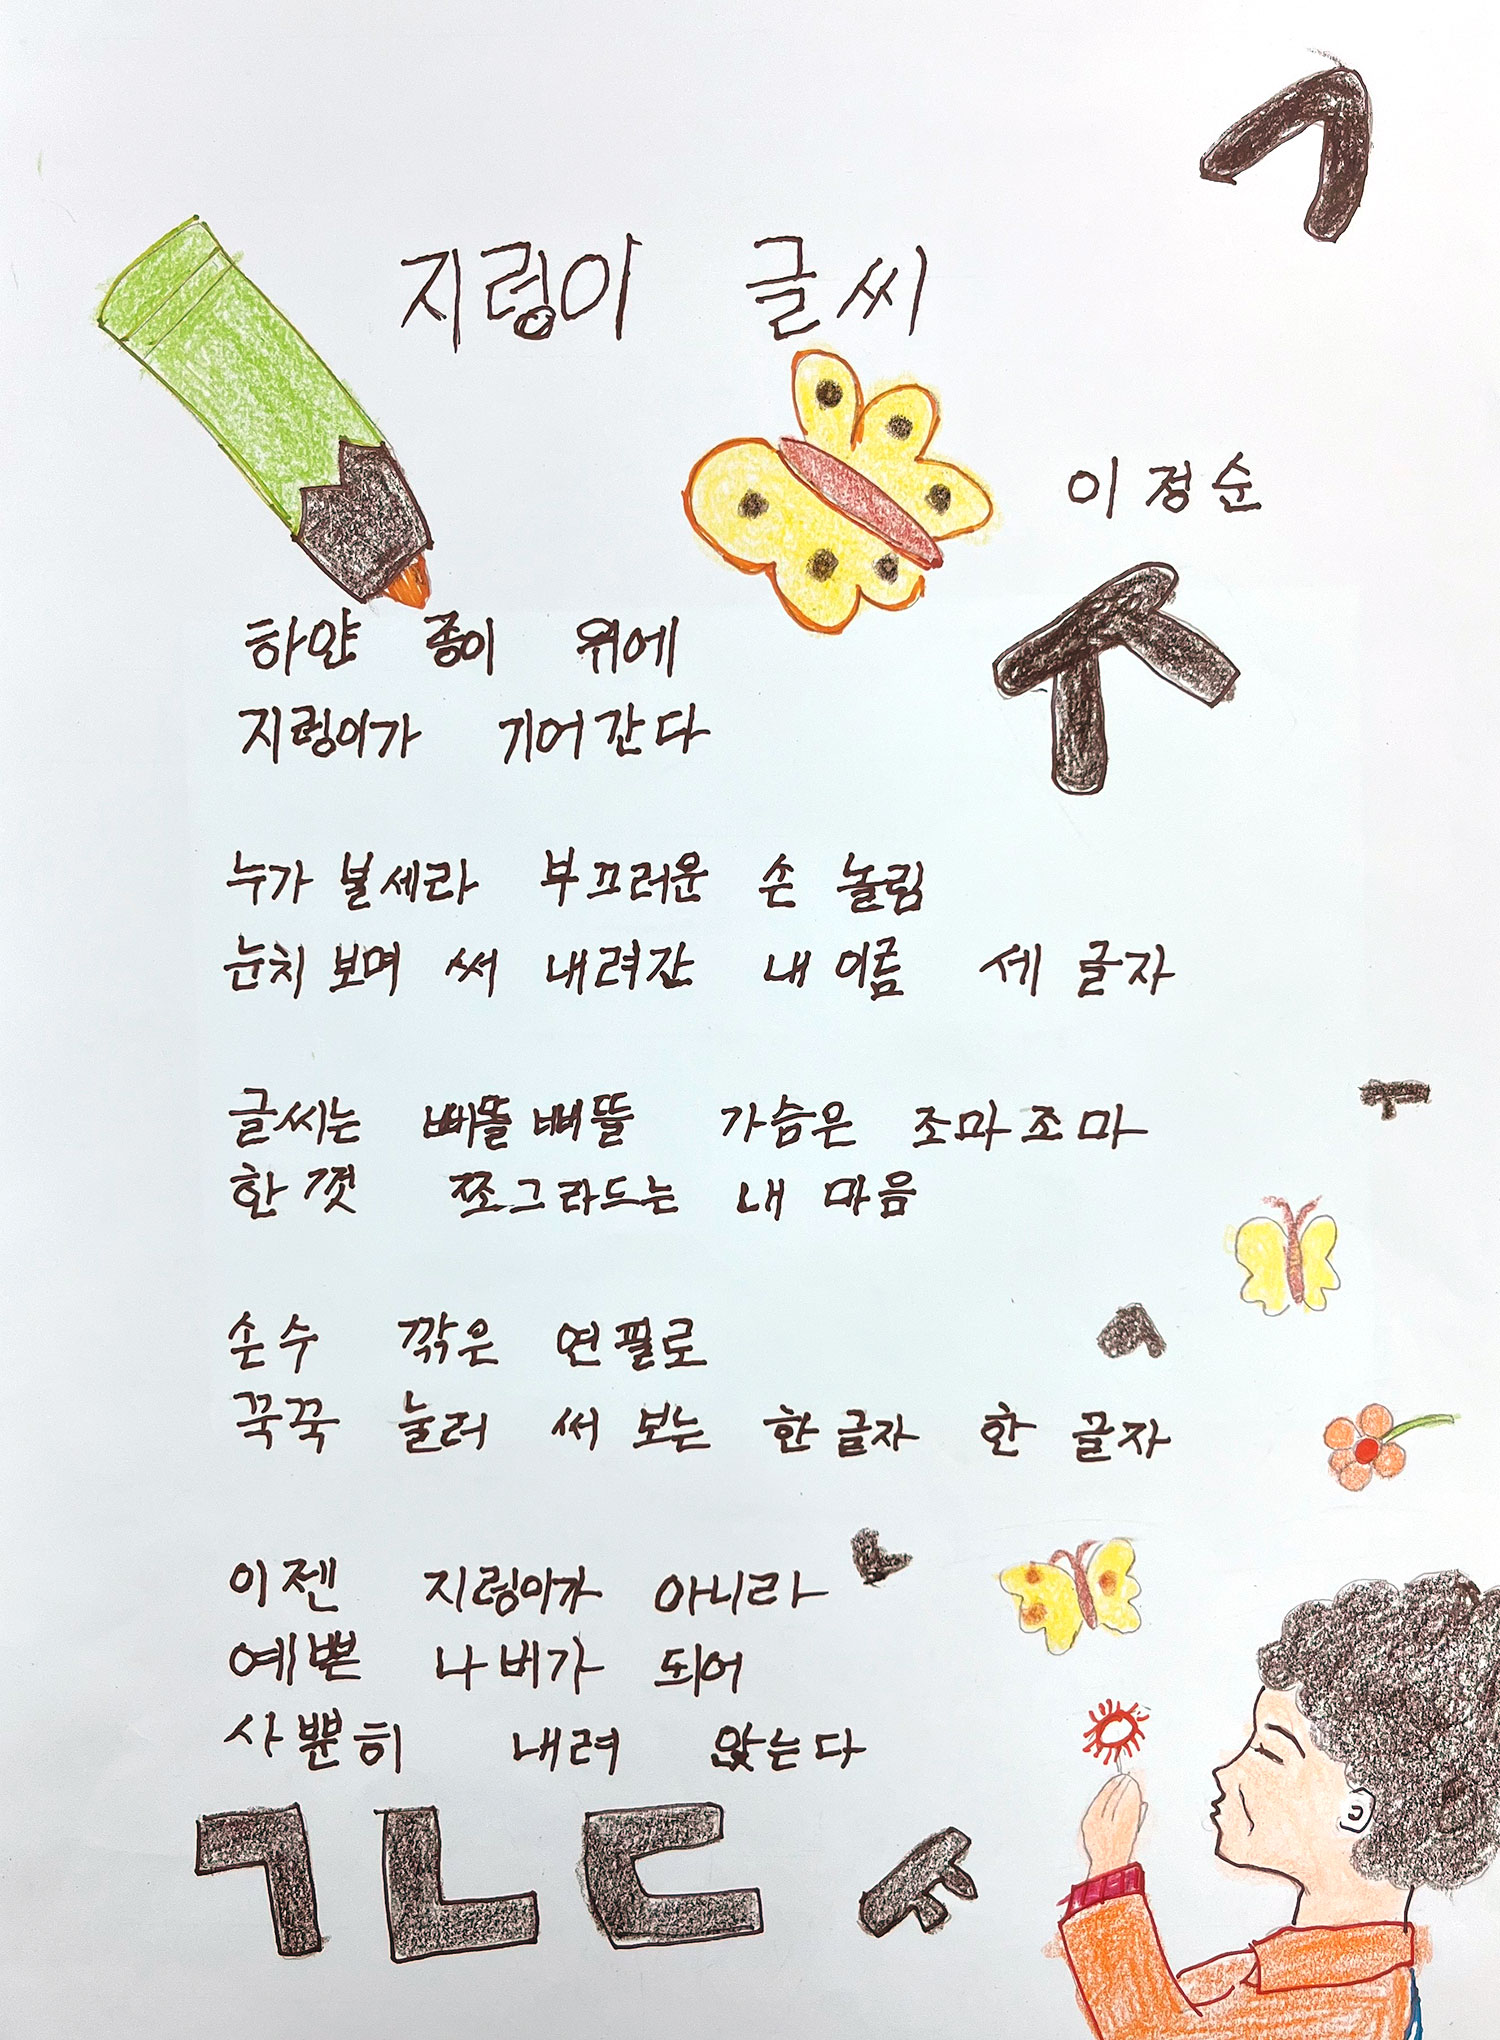 ㄱ
지렁이 글씨
이정순
ㅈ
하얀 종이 위에
지렁이가 기어간다
누가 볼세라 부끄러운 손 놀림
눈치 보며 써 내려간 내 이름 세 글자
글씨는 삐뚤삐뚤 가슴은 조마조마
한껏 쪼그라드는 내 마음
ㅜ
손수 깎은 연필로
ㅅ
꾹꾹 눌러 써 보는 한 글자 한 글자
이젠 지렁이가 아니라
ㄴ
예쁜 나비가 되어
사뿐히 내려 앉는다
ㄱㄴㄷ